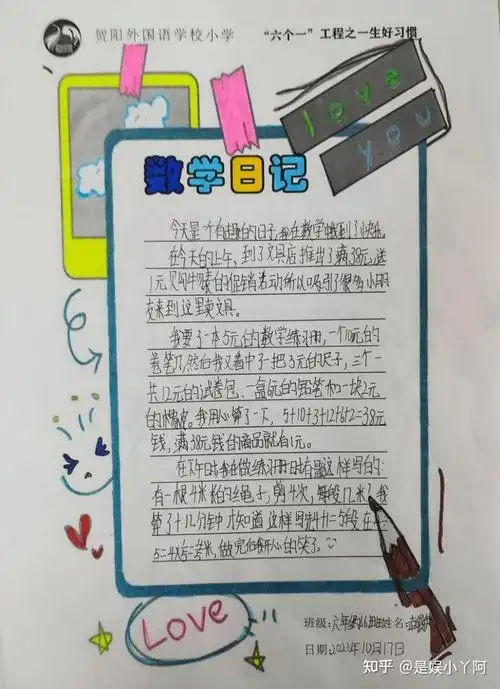 贺阳外国语学校小学 “六个一”工程之一生好习惯
love
you
数学日记
今天是个有趣的日子,我在数学
在今天的上午,到了文具店推出了满38元送
1元购物袋的促销活动所以吸引了很多小朋
友来到这里卖文具。
我要了一本5元的数学练习册,一个10元的
卷笔刀,然后我又看中了一把3元的尺子,三个一
共12元的试卷包、一盒6元的铅笔和一块2元
的橡皮。我用心算了一下,5+10+3+12+6+2=38元
钱,满38元钱的商品就有1元。
在下午时我在做练习册时有题这样写的:
有一根4米长的绳子,剪4次,每段几米?我
算了十几分钟才知道这样写4+1=5段
5=4×=米,做完后我开心的笑了。
Love
班级:六年级 班 姓名:
日期:202 年10月17日
知乎 @是娱小丫阿